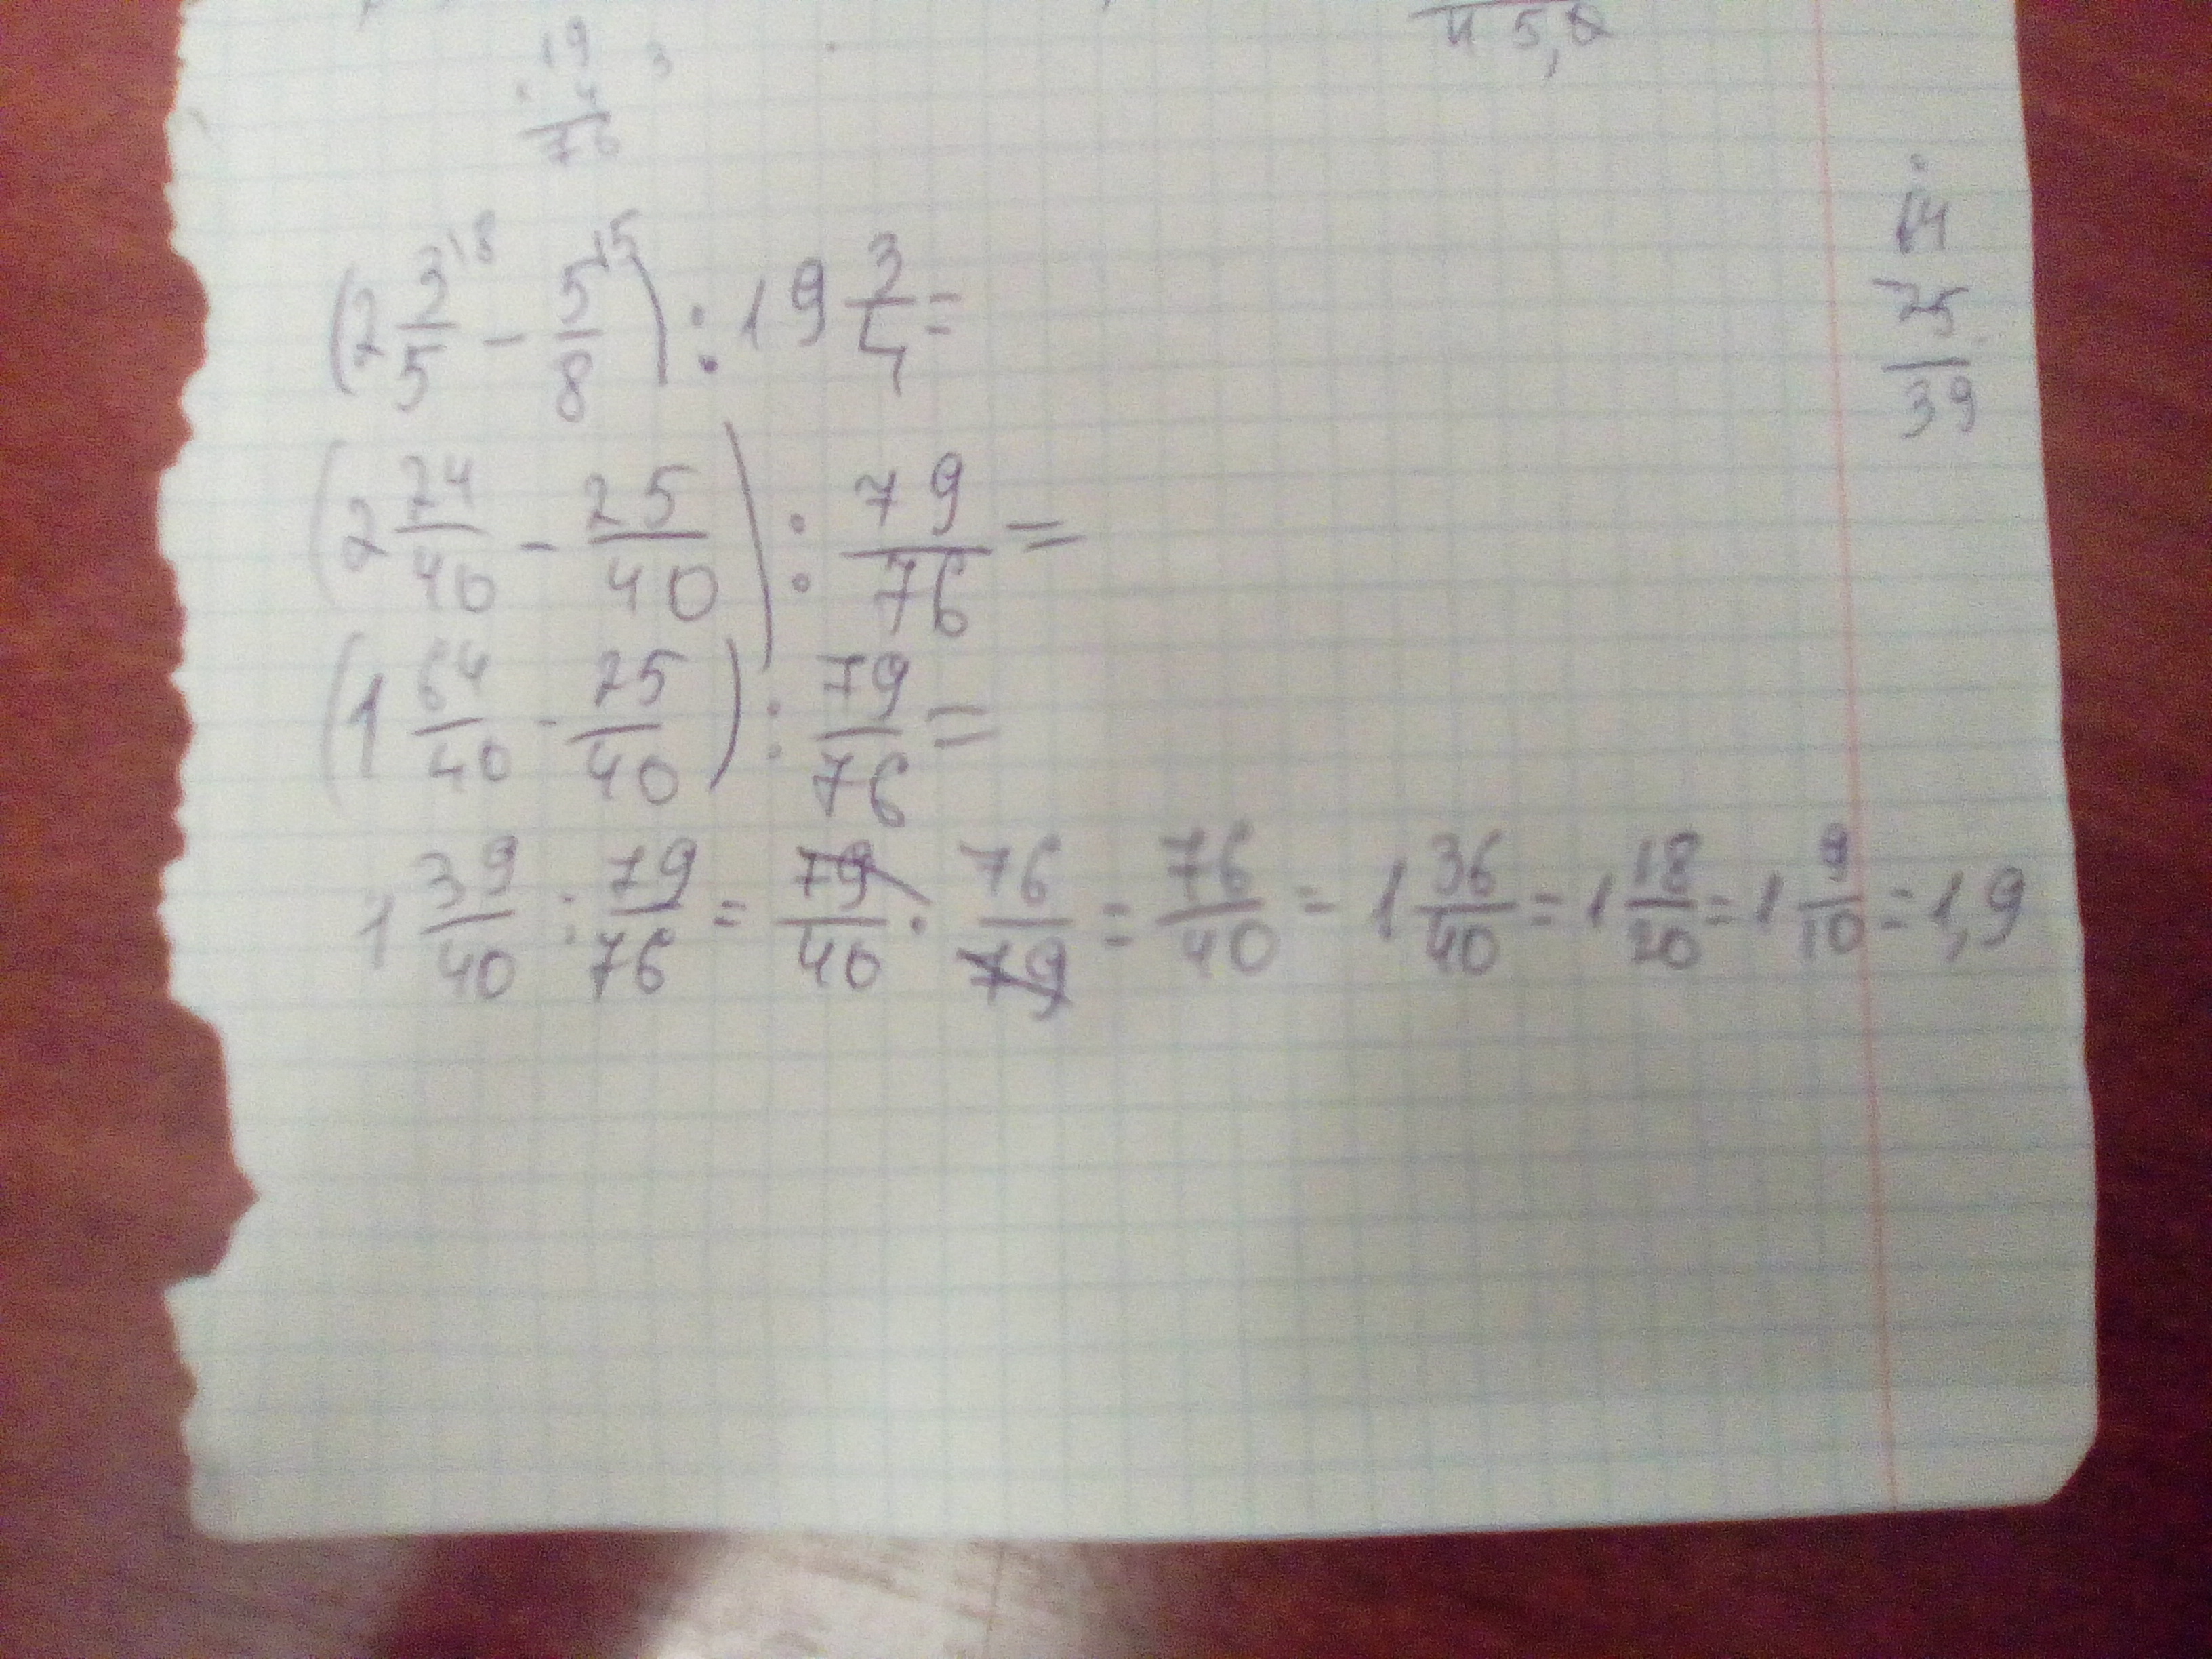 45,0
19 3
· 4
76
(2 3/5 ¹⁸ - 5/8 ¹⁵) : 19 3/4 =
64
- 25
39
(2 24/40 - 25/40) : 79/76 =
(1 64/40 - 25/40) : 79/76 =
1 39/40 : 79/76 = 79/40 · 76/79 = 76/40 = 1 36/40 = 1 18/20 = 1 9/10 = 1,9